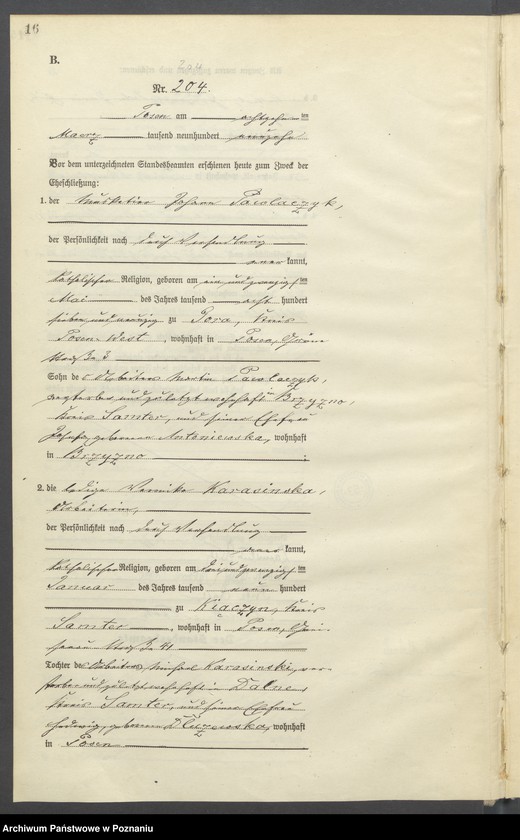 16
B.
204
Nr. 204.
Posen am achtzehnten
Maerz tausend neunhundert neunzehn
Vor dem unterzeichneten Standesbeamten erschienen heute zum Zweck der
Eheschließung:
1. der Musketier Johann Pawlaczyk,
der Persönlichkeit nach durch Verhandlung
anerkannt,
katholischer Religion, geboren am ein und zwanzigsten
Mai des Jahres tausend acht hundert
sieben und neunzig zu Gora, Kreis
Posen West, wohnhaft in Posen, Grüne
Straße 3
Sohn des Arbeiters Martin Pawlaczyk,
verstorben und zuletzt wohnhaft in Brzyzno,
Kreis Samter, und seiner Ehefrau
Josefa, geborenen Antoniewska, wohnhaft
in Brzyzno ;
2. die ledige Veronika Karasinska,
Arbeiterin,
der Persönlichkeit nach durch Verhandlung
anerkannt,
katholischer Religion, geboren am drei und zwanzigsten
Januar des Jahres tausend neun hundert
zu Kiączyn, Kreis
Samter, wohnhaft in Posen,
Straße 41
Tochter des Arbeiters Michael Karasinski, ver-
storben und zuletzt wohnhaft in
Kreis Samter, und seiner Ehefrau
Hedwig, geborenen Dluzewska, wohnhaft
in Posen
Archiwum Państwowe w Poznaniu